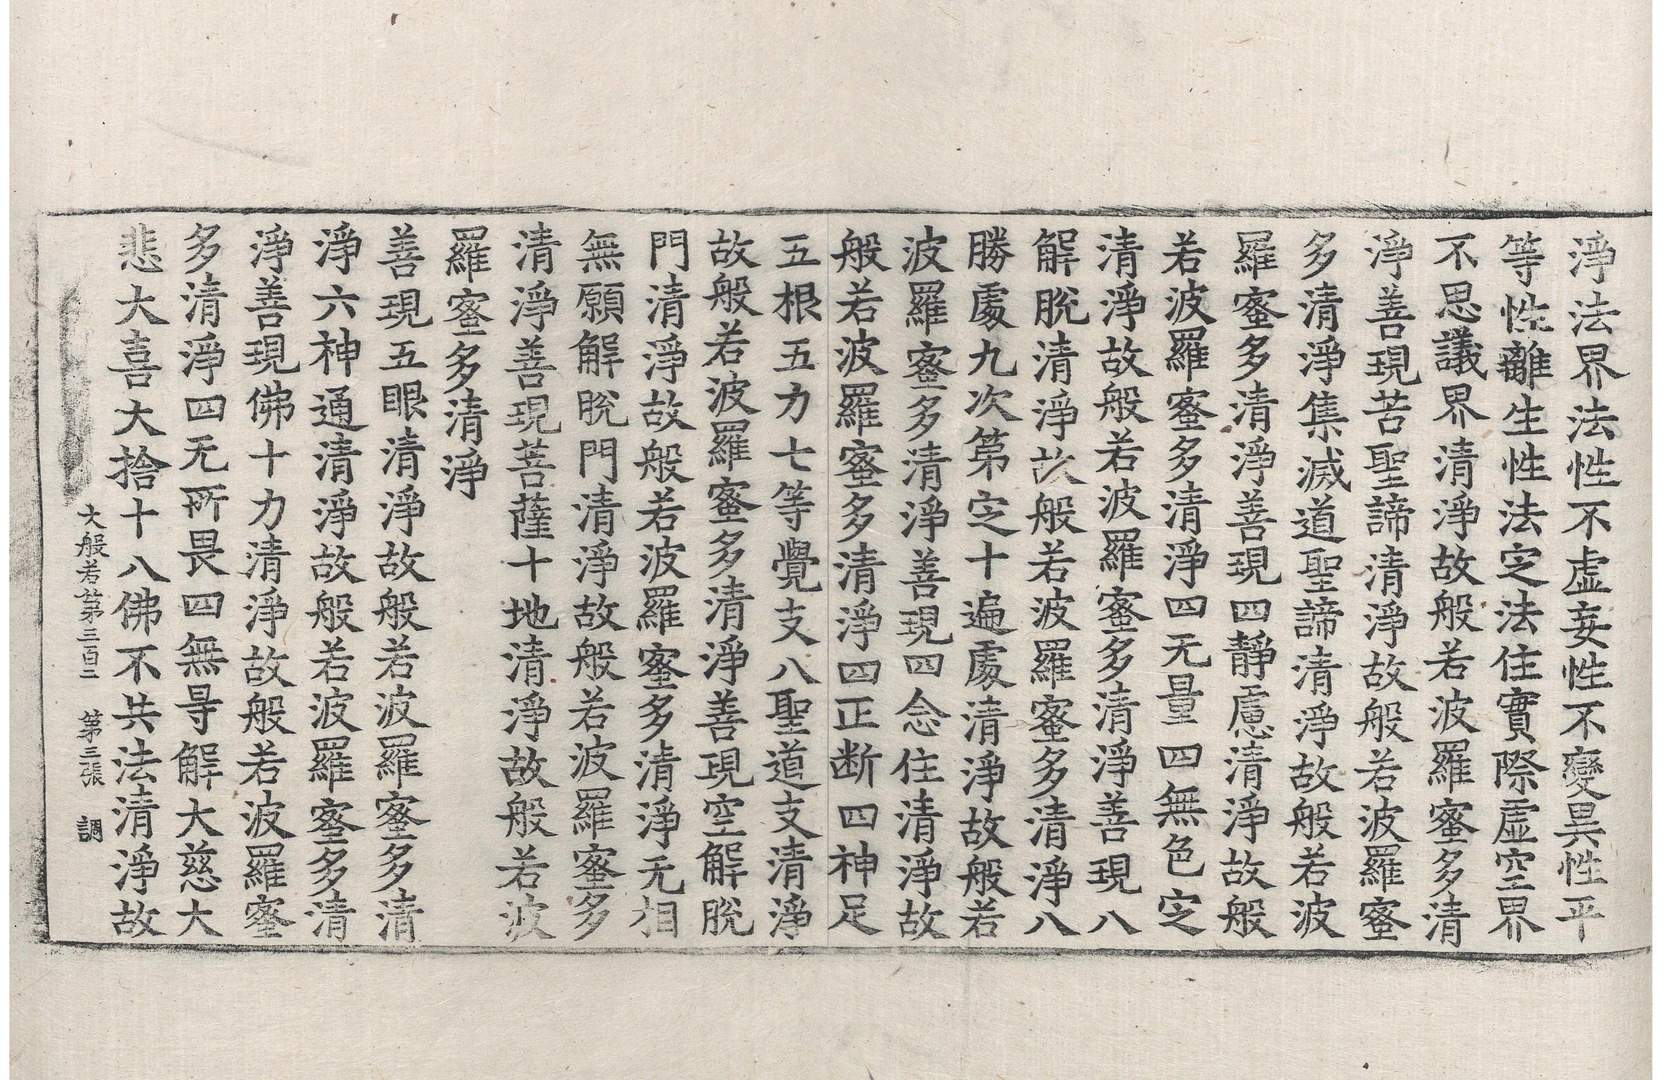 淨法界法性不虛妄性不變異性平
等性離生性法定法住實際虛空界
不思議界清淨故般若波羅蜜多清
淨善現苦聖諦清淨故般若波羅蜜
多清淨集滅道聖諦清淨故般若波
羅蜜多清淨善現四靜慮清淨故般
若波羅蜜多清淨四无量四無色定
清淨故般若波羅蜜多清淨善現八
解脫清淨故般若波羅蜜多清淨八
勝處九次第定十遍處清淨故般若
波羅蜜多清淨善現四念住清淨故
般若波羅蜜多清淨四正断四神足
五根五力七等覺支八聖道支清淨
故般若波羅蜜多清淨善現空解脫
門清淨故般若波羅蜜多清淨无相
無願解脫門清淨故般若波羅蜜多
清淨善現菩薩十地清淨故般若波
羅蜜多清淨
善現五眼清淨故般若波羅蜜多清
淨六神通清淨故般若波羅蜜多清
淨善現佛十力清淨故般若波羅蜜
多清淨四无所畏四無㝵解大慈大
悲大喜大捨十八佛不共法清淨故
大般若第三百二 第三張 調